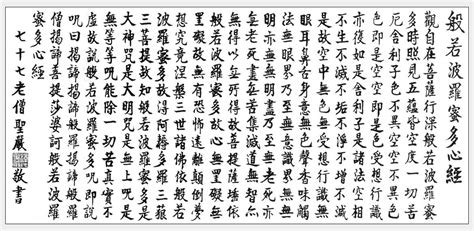 般若波羅蜜多心經
觀自在菩薩行深般若波羅蜜
多時照見五蘊皆空度一切苦
厄舍利子色不異空空不異
色色即是空空即是色受想行識
亦復如是舍利子是諸法空相
不生不滅不垢不淨不增不減
是故空中無色無受想行識
無眼耳鼻舌身意無色聲香味觸
法無眼界乃至無意識界無無
明亦無無明盡乃至無老死亦無
老死盡無苦集滅道無智亦
無得以無所得故菩提薩埵依般
若波羅蜜多故心無罣礙無罣
礙故無有恐怖遠離顛倒夢想
究竟涅槃三世諸佛依般若
波羅蜜多故得阿耨多羅三藐
三菩提故知般若波羅蜜多是
大神咒是大明咒是無上咒是
無等等咒能除一切苦真實不
虛故說般若波羅蜜多咒即說
咒曰揭諦揭諦般羅揭諦般羅
僧揭諦菩提莎婆訶般若波羅
蜜多心經
七十七老僧聖嚴敬書